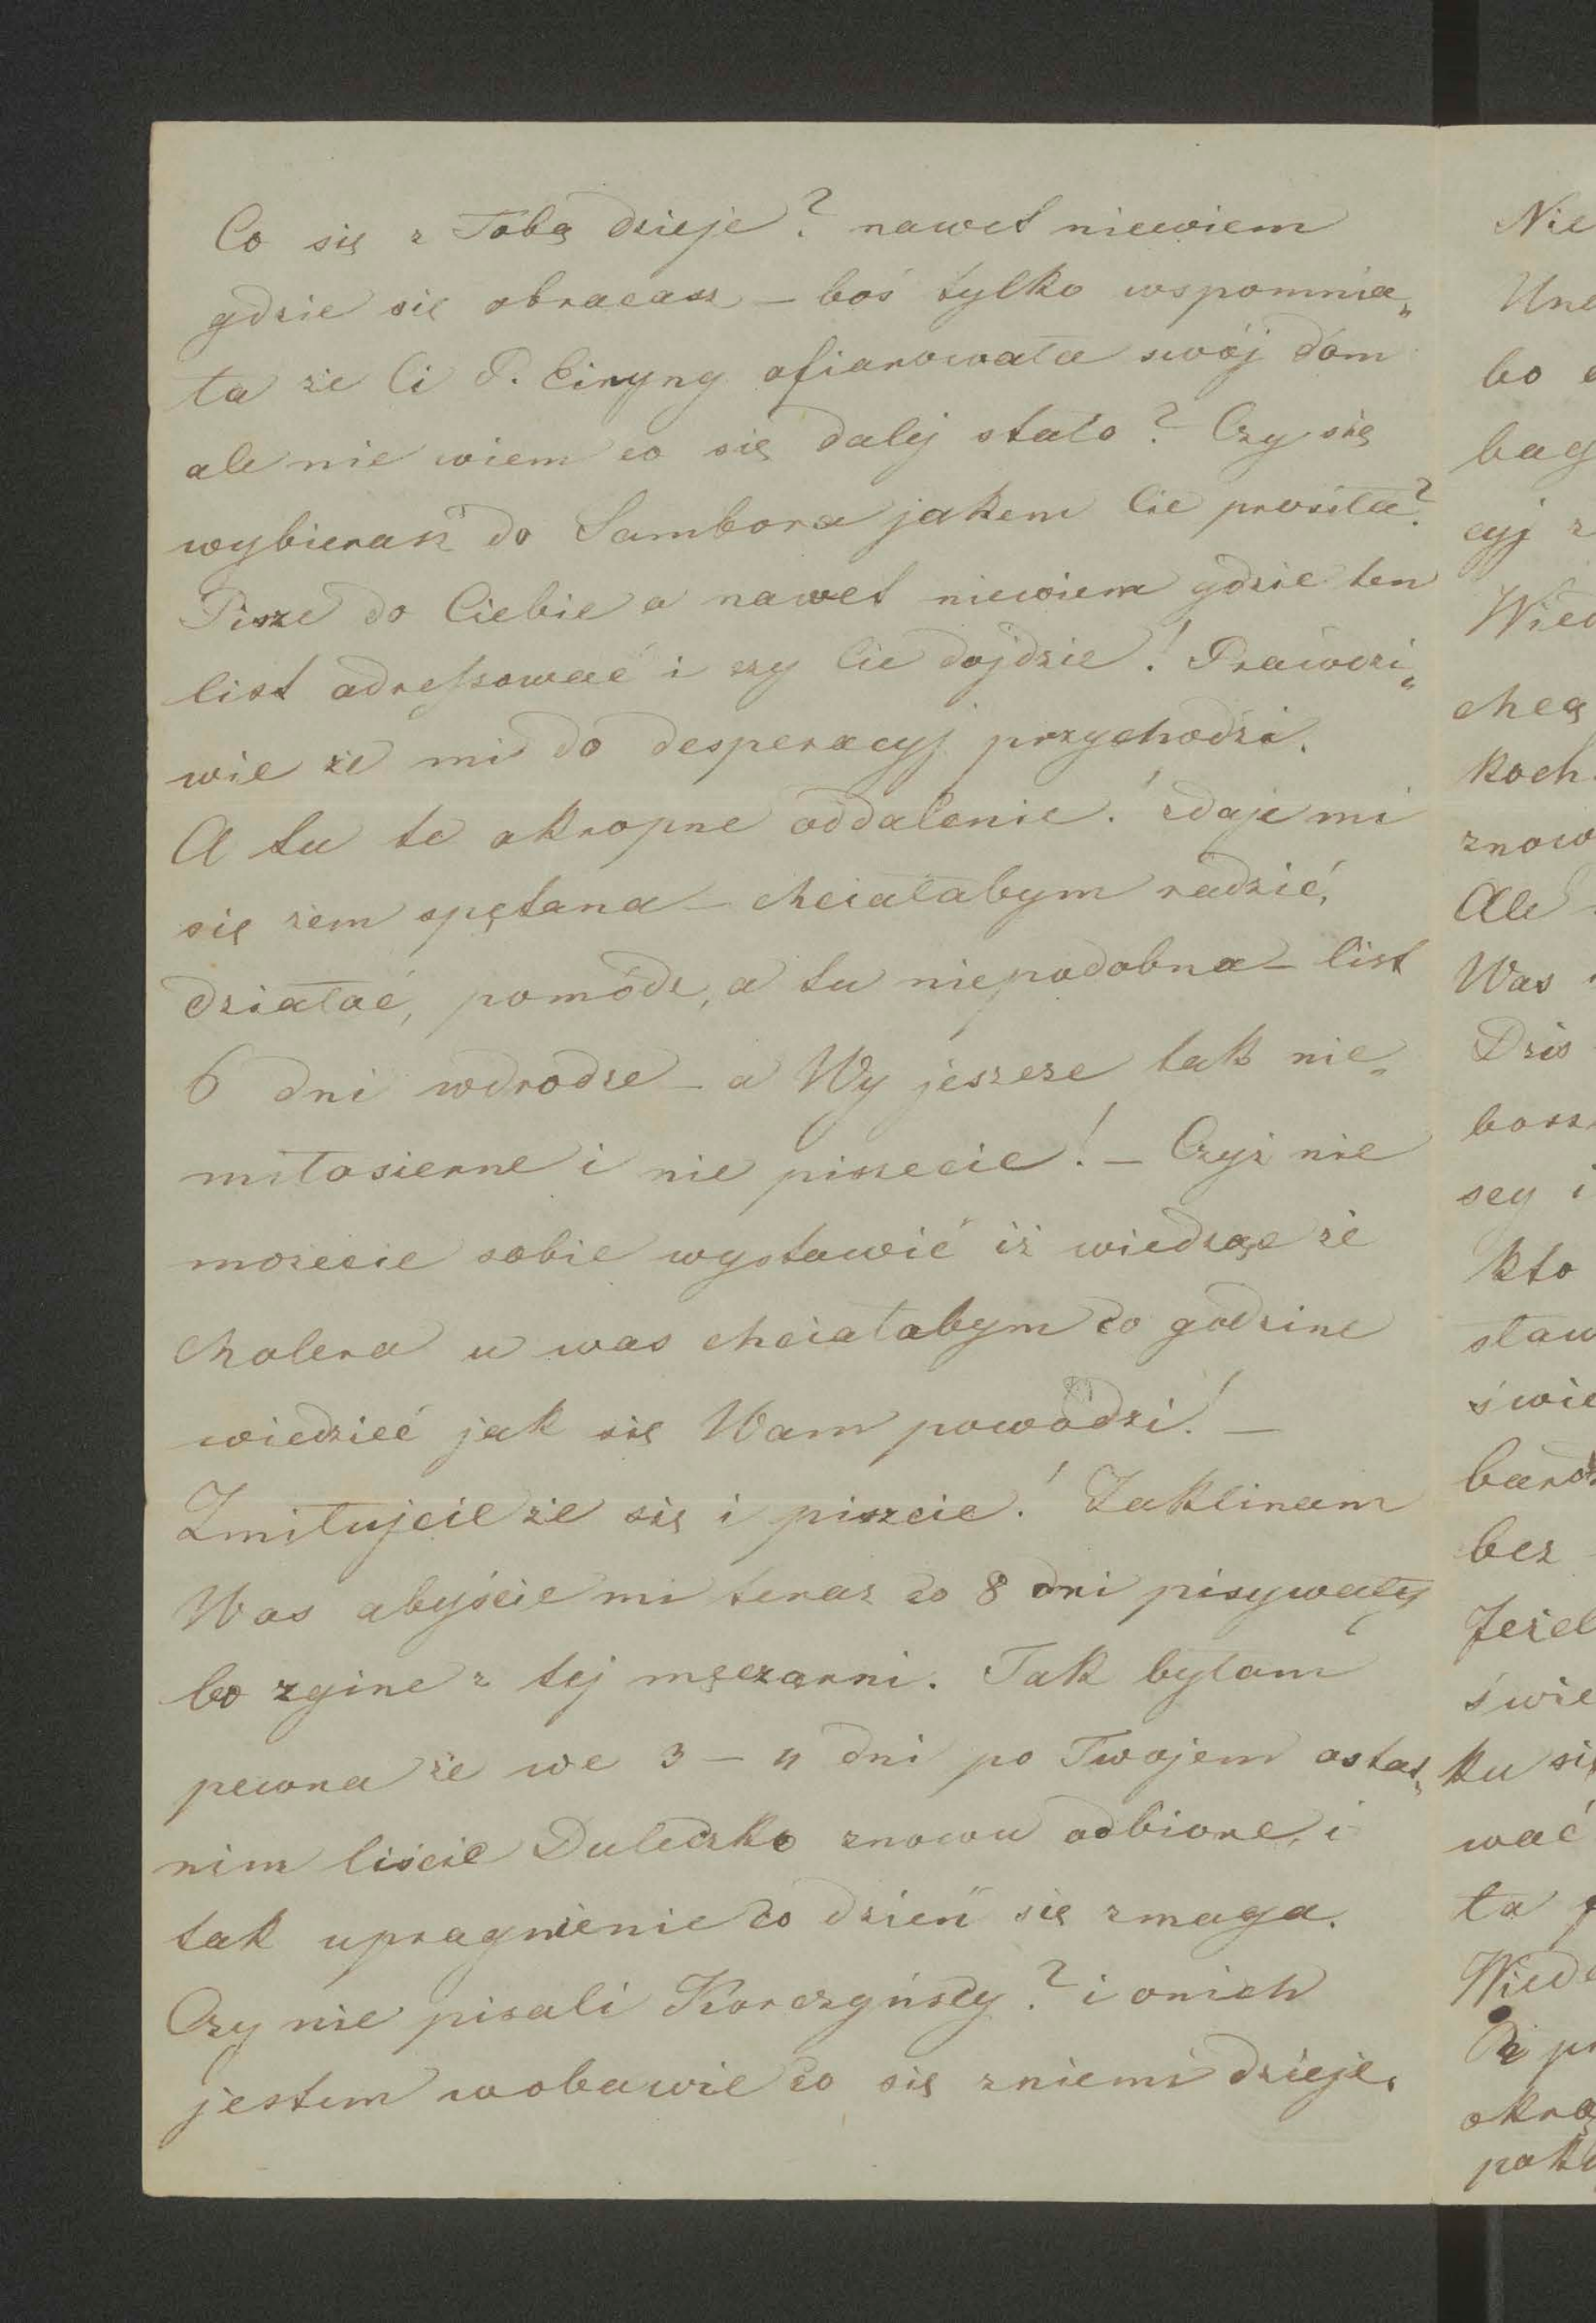 Co się z Tobą dzieje? nawet niewiem
gdzie się obracasz – boś tylko wspomnia„
ła że Ci P. Ciryng ofiarowała swój dóm
ale nie wiem co się dalej stało? Czy się
wybierasz do Sambora jakem Cie prosiła?
Pisze do Ciebie a nawet niewiem gdzie ten
list adressować i czy Cie dojdzie! Prawdzi„
wie że mi do desperacyj przychodzi.
A tu te okropne oddalenie! zdaje mi
się żem spętana – chciałabym radzić,
działać, pomódz, a tu niepodobna – list
6 dni wdrodze – a Wy jeszcze tak nie„
miłosierne i nie piszecie! – Czyż nie
możecie sobie wystawić iż wiedząc że
cholera u was chciałabym co godzine
wiedzieć jak się Wam powodzi! –
Zmiłujcie że się i piszcie! Zaklinam
Was abyście mi teraz co 8 dni pisywały
bo zgine z tej męczarni. Tak byłam
pewna że we 3 – 4 dni po Twojem ostat„
nim liście Duleczko znowu odbiorę, i
tak upragnienie co dzień się zmaga.
Czy nie pisali Korczyńscy? i onich
jestem wobawie co się zniemi dzieje.
Nie
bo
bag
cyj z
Wied
chcą
koch
znow
Ale
Was
Dziś
bosz
sey i
kto
staw
świe
bard
bez
Jeżel
świe
ku się
wać
ła
Wied
okro